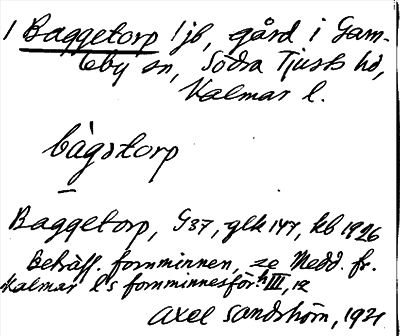 1 Baggetorp 1 jb, gård i Gam-
leby sn, Södra Tjusts hd,
Kalmar l.
bàgstorp
Baggetorp, G37, glk 147, kb 1926
Beträff. fornminnen, se Medd. fr.
Kalmar l:s fornminnesför. III, 12
Axel Sandström, 1921